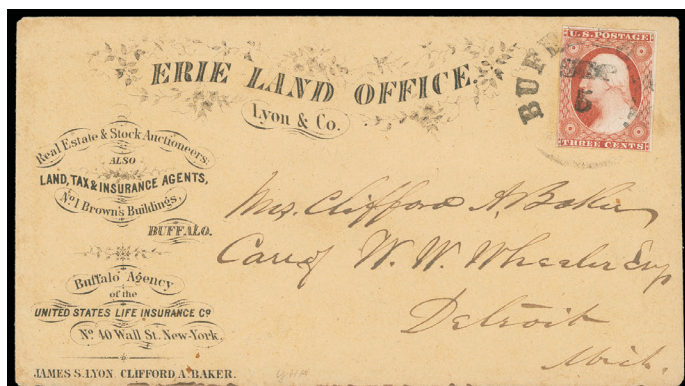 ERIE LAND OFFICE.
Lyon & Co.
Real Estate & Stock Auctioneers,
ALSO
LAND, TAX & INSURANCE AGENTS,
No 1 Brown's Buildings,
BUFFALO.
Buffalo Agency
of the
UNITED STATES LIFE INSURANCE Co
No. 40 Wall St. New-York,
JAMES S. LYON. CLIFFORD A. BAKER.
U.S. POSTAGE
THREE CENTS
BUF
5
Mrs. Clifford A. Baker
Care of W. W. Wheeler Esq
Detroit
Mich.